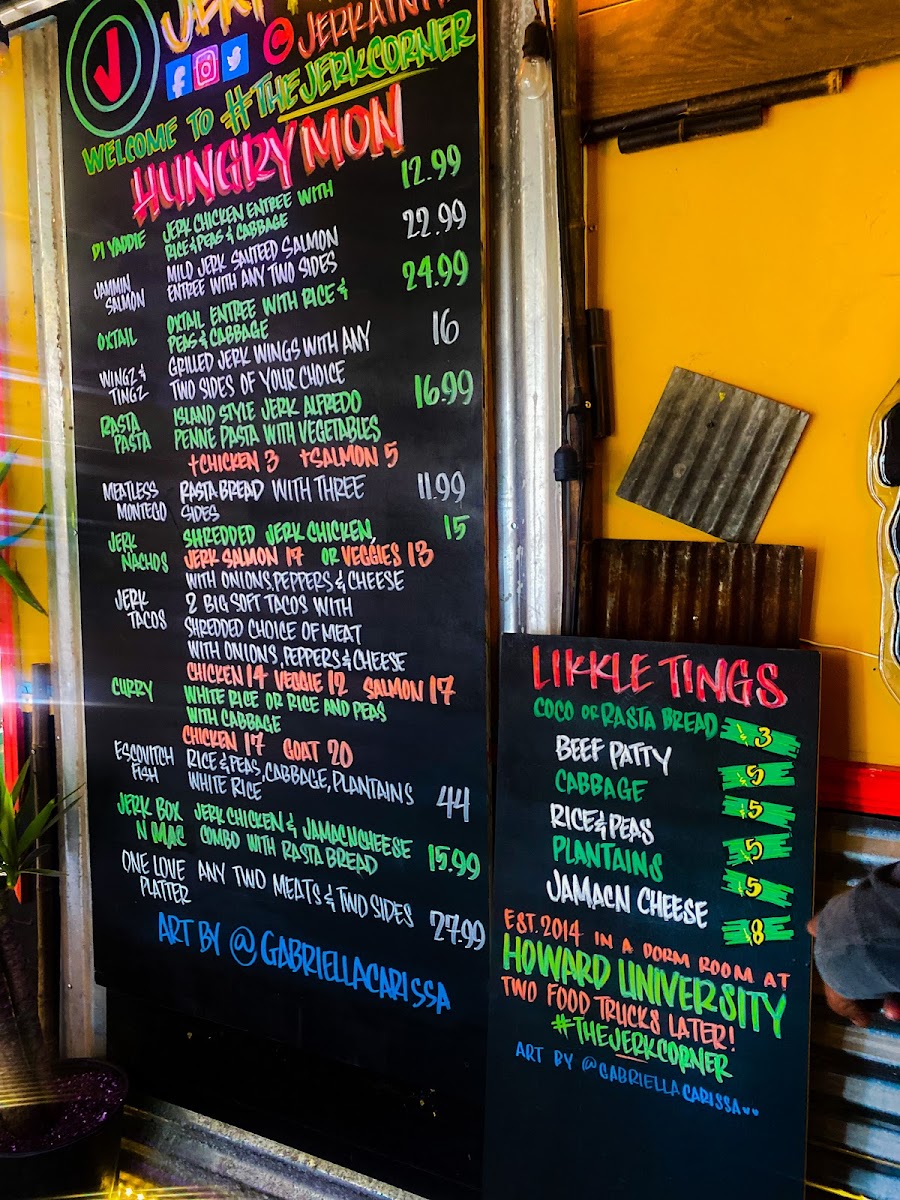 WELCOME TO #THEJERKCORNER
HUNGRY MON
DI YADDIE JERK CHICKEN ENTREE WITH 12.99
RICE & PEAS & CABBAGE
JAMMIN SALMON MILD JERK SAUTEED SALMON 22.99
ENTREE WITH ANY TWO SIDES
OXTAIL OXTAIL ENTREE WITH RICE & 24.99
PEAS & CABBAGE
WINGZ & TINGZ GRILLED JERK WINGS WITH ANY 16
TWO SIDES OF YOUR CHOICE
RASTA PASTA ISLAND STYLE JERK ALFREDO 16.99
PENNE PASTA WITH VEGETABLES
+CHICKEN 3 +SALMON 5
MEATLESS MONTEGO RASTA BREAD WITH THREE 11.99
SIDES
JERK NACHOS SHREDDED JERK CHICKEN, 15
JERK SALMON 17 OR VEGGIES 13
WITH ONIONS, PEPPERS & CHEESE
JERK TACOS 2 BIG SOFT TACOS WITH
SHREDDED CHOICE OF MEAT
WITH ONIONS, PEPPERS & CHEESE
CHICKEN 14 VEGGIE 12 SALMON 17
CURRY WHITE RICE OR RICE AND PEAS
WITH CABBAGE
CHICKEN 17 GOAT 20
ESCOVITCH FISH RICE & PEAS, CABBAGE, PLANTAINS 44
WHITE RICE
JERK BOX N MAC JERK CHICKEN & JAMACNCHEESE 15.99
COMBO WITH RASTA BREAD
ONE LOVE PLATTER ANY TWO MEATS & TWO SIDES 27.99
ART BY @GABRIELLACARISSA
LIKKLE TINGS
COCO OR RASTA BREAD $3
BEEF PATTY $5
CABBAGE $5
RICE & PEAS $5
PLANTAINS $5
JAMACN CHEESE $8
EST. 2014 IN A DORM ROOM AT
HOWARD UNIVERSITY
TWO FOOD TRUCKS LATER!
#THEJERKCORNER
ART BY @GABRIELLACARISSA